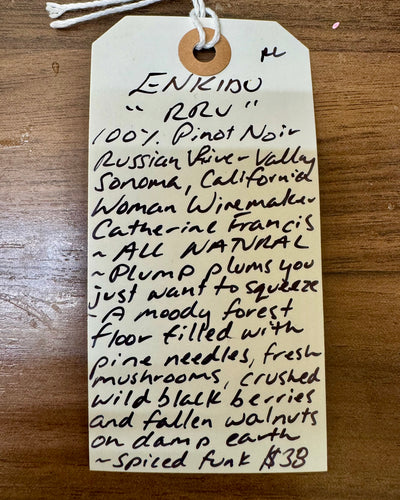 AL
ENKIDU
"RRV"
100% Pinot Noir
Russian River Valley
Sonoma, California
Woman Winemaker
Catherine Francis
~ ALL NATURAL
~ Plump plums you
just want to squeeze
- A moody forest
floor filled with
pine needles, fresh
mushrooms, crushed
wild black berries
and fallen walnuts
on damp earth
~ spiced funk $38